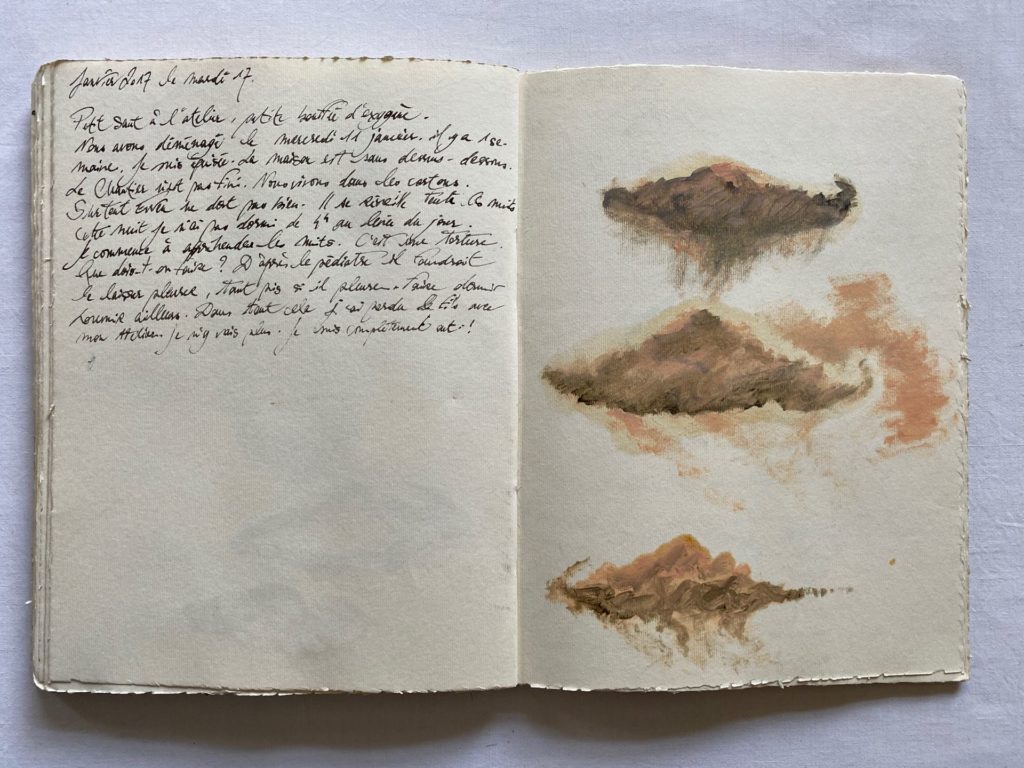 Janvier 2017 le mardi 17.
Petit saut à l'atelier, petite bouffée d'oxygène.
Nous avons déménagé le mercredi 11 janvier. il y a 1 se-
maine. Je suis épuisée. La maison est sans dessus-dessous.
Le Chantier n'est pas fini. Nous vivons dans les cartons.
Surtout ne dort pas bien. Il se réveille toute les nuits
cette nuit je n'ai pas dormi de 4h au levée du jour.
Je commence à appréhender les nuits. C'est une torture.
Que dois-t-on faire ? D'après le pédiatre il faudrait
le laisser pleurer, tant pis si il pleure. Faire dormir
ailleurs. Dans tout cela j'ai perdu le fil avec
mon Atelier. Je n'y vais plus. Je suis complètement out !